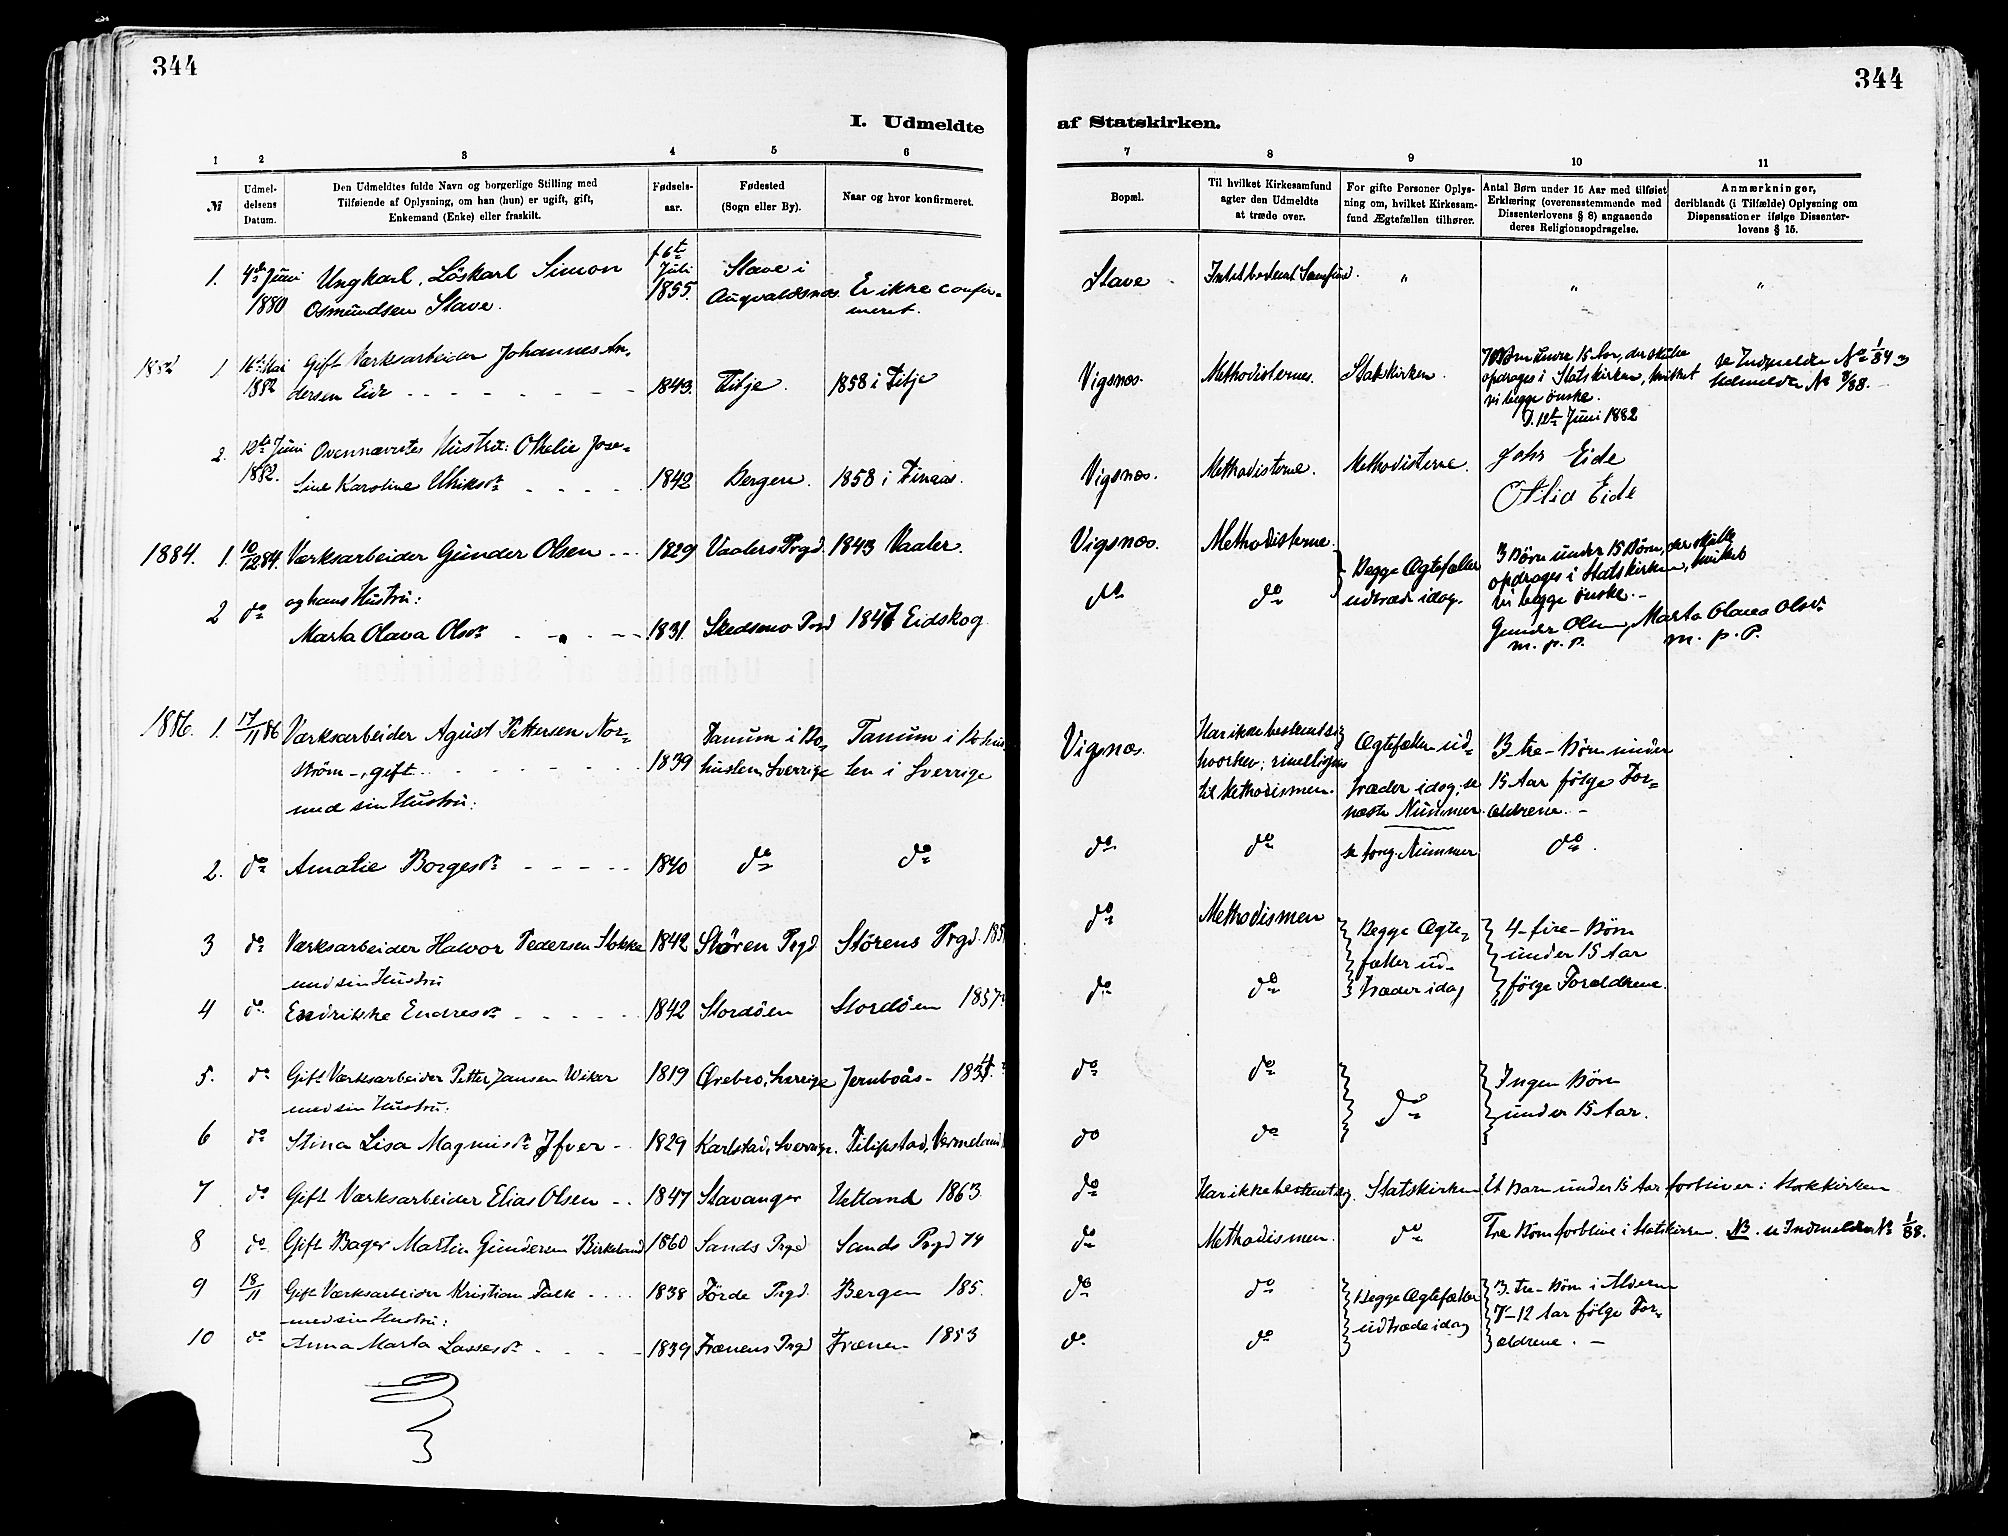 344
344
I. Udmeldte
af Statskirken.
1 2 3 4 5 6
7 8 9 10 11
№
Udmel-
delsens
Datum.
Den Udmeldtes fulde Navn og borgerlige Stilling med
Tilføiende af Oplysning, om han (hun) er ugift, gift,
Enkemand (Enke) eller fraskilt.
Fødsels-
aar.
Fødested
(Sogn eller By).
Naar og hvor konfirmeret.
Bopæl.
Til hvilket Kirkesamfund
agter den Udmeldte
at træde over.
For gifte Personer Oplys-
ning om, hvilket Kirkesam-
fund Ægtefællen tilhører.
Antal Børn under 15 Aar med tilføiet
Erklæring (overensstemmende med
Dissenterlovens § 8) angaaende
deres Religionsopdragelse.
Anmærkninger,
deriblandt (i Tilfælde) Oplysning om
Dispensationer ifølge Dissenter-
lovens § 15.
1. 4de Juni
1880
Ungkarl, Löskarl Simon
Osmundsen Stave.
f. 6te
Juli
1855.
Stave i
Augvaldsnæs
Er ikke confir-
meret.
Stave
Intet bestemt Samfund.
"
"
"
1882 1 16de Mai
1882
Gift Værksarbeider Johannes An-
dersen Eide
1843.
Fitje.
1858 i Fitje
Vigsnæs.
Methodisternes.
Statskirken.
7 Børn under 15 Aar, der skulle
opdrages i Statskirken, hvilket
vi begge ønske.
D. 12te Juni 1882
se Indmeldte No 1/84 og
Udmeldte No 8/88.
2. 12te Juni
1882.
Ovennævntes Hustru: Othelie Jose-
fine Karoline Ulriksdr
1842
Bergen.
1858 i Finaas.
Vigsnæs.
Methodisterne.
Methodisterne.
Johs Eide
Otlia Eide
1884. 1. 10/12 84.
Værksarbeider Gunder Olsen
1829
Vaalers Prgd.
1843 Vaaler.
Vigsnæs.
Methodisterne.
Begge Ægtefæller
udtræde idag.
3 Børn under 15 Børn, der skulle
opdrages i Statskirken, hvilket
vi begge ønske.
Gunder Olsen, Marta Olava Olsdr
m. p. P. m. p. P.
2 do
og hans Hustru:
Marta Olava Olsdr
1831.
Skedsmo Prgd
1847 Eidskog
do
do
1886. 1. 17/11 86
Værksarbeider Agust Pettersen Nor-
ström -, gift
med sin Hustru:
1839
Tanum i Bo-
huslen, Sverrige
Tanum i Bohus
len i Sverrige
Vigsnæs.
Har ikke bestemt sig
hvorhen; rimeligvis
til Methodismen.
Ægtefællen ud-
træder idag; se
næste Nummer
3 - tre - Børn under
15 Aar følge For-
ældrene. -
2. do
Amalie Borgesdr
1840
do
do
do
do
se forrg. Nummer
do.
3 do
Værksarbeider Halvor Pedersen Stokke
med sin Hustru
1842
Støren Prgd
Störens Prgd.
do
Methodismen
Begge Ægte-
fæller ud-
træder idag
4 - fire - Børn
under 15 Aar
følge Forældrene.
4 do
Endrikke Endresdr
1842
Stordöen
Stordöen 1857
do
do
5. do
Gift Værksarbeider Petter Jansen Wiker
med sin Hustru:
1819
Ørebro, Sverige
Jernboås -
do
do
do
Ingen Børn
under 15 Aar.
6 do
Stina Lisa Magnusdr
1829
Karlstad, Sverrige.
Filipstad, Vermeland
do
do
7 do
Gift Værksarbeider Elias Olsen
1847
Stavanger
Hetland 1863
do
Har ikke bestemt sig.
Statskirken
Et Barn under 15 Aar forbliver i Statskirken
8 do
Gift Bager Martin Gundersen Birkeland
1860
Sands Prgd
Sands Prgd 74
do
Methodismen.
do
Tre Børn forblive i Statskirken.
NB. se Indmeldte No 1/88.
9 18/11
Gift Værksarbeider Kristian Falk
med sin Hustru:
1838
Förde Prgd.
Bergen 185.
do
do
Begge Ægtefæller
udtræde idag
3. tre - Børn i Alderen
7 - 12 Aar følge For-
ældrene. -
10 do
Anna Marta Lassesdr
1839
Frænens Prgd
Frænen 1853
do
do